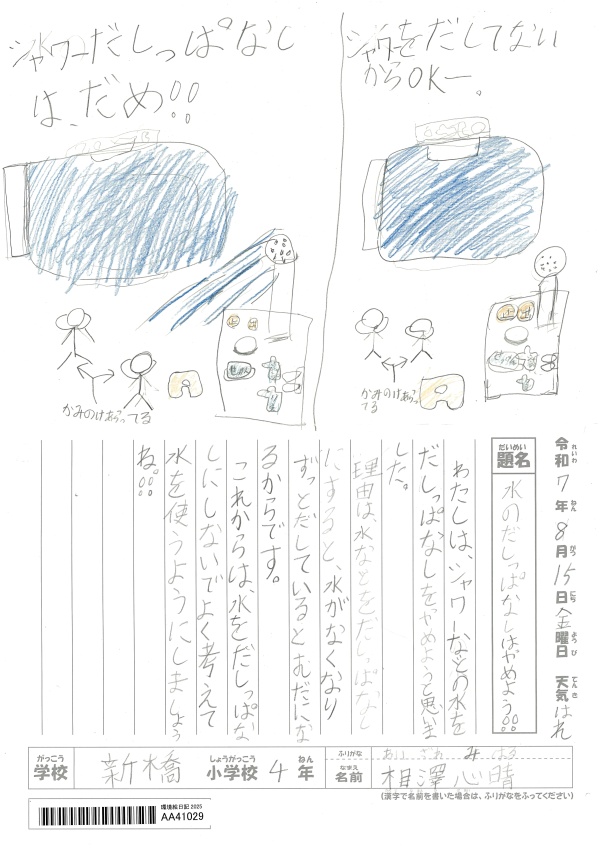 シャワーだしっぱなし
は、だめ!!
シャワーをだしてない
からOKー。
止
出
せっけん
かみのけあらってる
止
出
せっけん
かみのけあらっ
てる
令和7年8月15日金曜日 天気はれ
れいわ ねん がつ にち ようび てんき
だいめい
題名 水のだしっぱなしはやめよう!!
わたしは、シャワーなどの水を
だしっぱなしをやめようと思いま
した。
理由は水などをだしっぱなし
にすると、水がなくなり
ずっとだしているとむだにな
るからです。
これからは、水をだしっぱな
しにしないでよく考えて
水を使うようにしましょう
ね。!!
がっこう しょうがっこう ねん ふりがな あいざわ みはる
学校 新橋 小学校 4年 なまえ 名前 相澤心晴
(漢字で名前を書いた場合は、ふりがなをふってください)
環境絵日記2025
AA41029